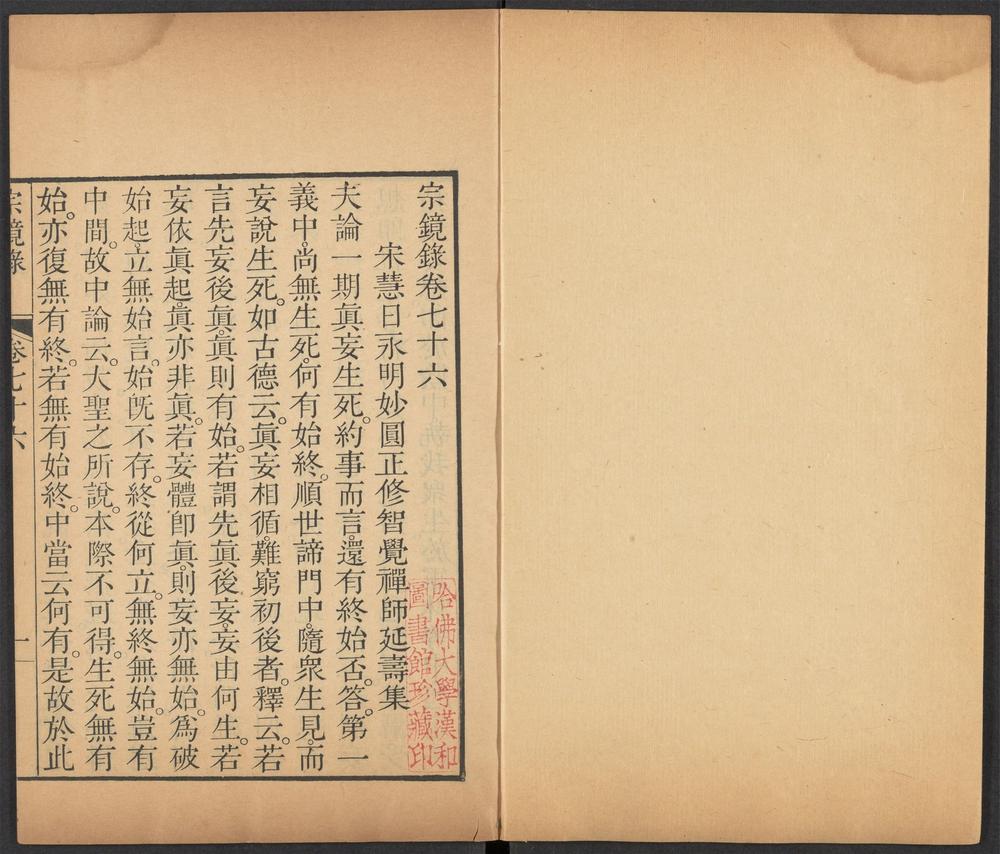 宗鏡錄卷七十六
宋慧日永明妙圓正修智覺禪師延壽集
夫論一期眞妄生死。約事而言。還有終始否。答。第一
義中。尚無生死。何有始終。順世諦門中。隨衆生見。而
妄說生死。如古德云。眞妄相循。難窮初後者。釋云。若
言先妄後眞。眞則有始。若謂先眞後妄。妄由何生。若
妄依眞起。眞亦非眞。若妄體卽眞。則妄亦無始。爲破
始起。立無始言。始旣不存。終從何立。無終無始。豈有
中間。故中論云。大聖之所說。本際不可得。生死無有
始。亦復無有終。若無有始終。中當云何有。是故於此
宗鏡錄
卷七十六
一
哈佛大學漢和
圖書館珍藏印